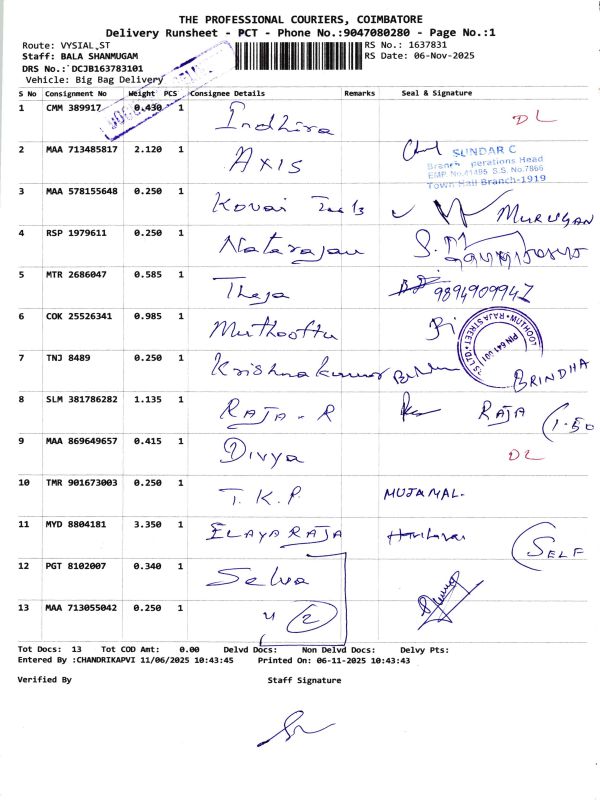 THE PROFESSIONAL COURIERS, COIMBATORE
Delivery Runsheet - PCT - Phone No.:9047080280 - Page No.:1
Route: VYSIAL_ST RS No.: 1637831
Staff: BALA SHANMUGAM RS Date: 06-Nov-2025
DRS No.: DCJB163783101
Vehicle: Big Bag Delivery
S No Consignment No Weight PCS Consignee Details Remarks Seal & Signature
1 CMM 389917 0.430 1 Indhira DL
2 MAA 713485817 2.120 1 Axis
SUNDAR C
Branch Operations Head
EMP. No.41495 S.S. No.7866
Town Hall Branch-1919
3 MAA 578155648 0.250 1 Kovai MURUGAN
4 RSP 1979611 0.250 1 Natarajan
5 MTR 2686047 0.585 1 Theja 9894909947
6 COK 25526341 0.985 1 Muthoottu
RAJA STREET PIN 641 001
7 TNJ 8489 0.250 1 Krishnakumar BRINDHA
8 SLM 381786282 1.135 1 RAJA - R RAJA 1.50
9 MAA 869649657 0.415 1 Divya DL
10 TMR 901673003 0.250 1 T.K.P MUJAMAL.
11 MYD 8804181 3.350 1 ELAYARAJA SELF
12 PGT 8102007 0.340 1 Selva
13 MAA 713055042 0.250 1 " 2
Tot Docs: 13 Tot COD Amt: 0.00 Delvd Docs: Non Delvd Docs: Delvy Pts:
Entered By :CHANDRIKAPVI 11/06/2025 10:43:45 Printed On: 06-11-2025 10:43:43
Verified By Staff Signature